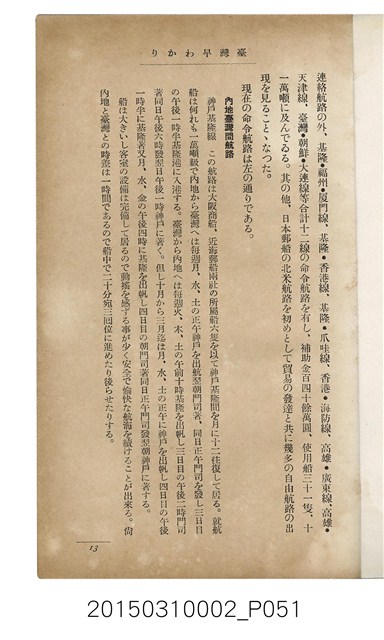 臺灣早わかり
連絡航路の外、基隆●福州●厦門線、基隆●香港線、基隆●爪哇線、香港●海防線、高雄●廣東線、高雄●
天津線、臺灣●朝鮮●大連線等合計十二線の命令航路を有し、補助金百四十餘萬圓、使用船三十一隻、十
一萬噸に及んでゐる。其の他、日本郵船の北米航路を初めとして貿易の發達と共に幾多の自由航路の出
現を見ることゝなつた。
現在の命令航路は左の通りである。
內地臺灣間航路
神戸基隆線 この航路は大阪商船、近海郵船兩社の所屬船六隻を以て神戸基隆間を月に十二往復して居る。就航
船は何れも一萬噸級で內地から臺灣へは每週月、水、土の正午神戸を出帆翌朝門司著、同日正午門司を發し三日目
の午後一時半基隆港に入港する。臺灣から內地へは每週火、木、土の午前十時基隆を出帆し三日目の午後二時門司
著同日午後六時發翌日午後一時神戸に著く。但し十月から三月迄は月、水、土の正午に神戸を出帆し四日目の午後
一時半に基隆著又月、水、金の午後四時に基隆を出帆し四日目の朝門司著同日正午門司發翌朝神戸に著する。
船は大きいし客室の設備は完備して居るので動搖を感ずる事が少く安全で愉快な航海を續けることが出來る。尙
內地と臺灣との時差は一時間であるので船中で二十分宛三囘位に進めたり後らせたりする。
13
20150310002_P051